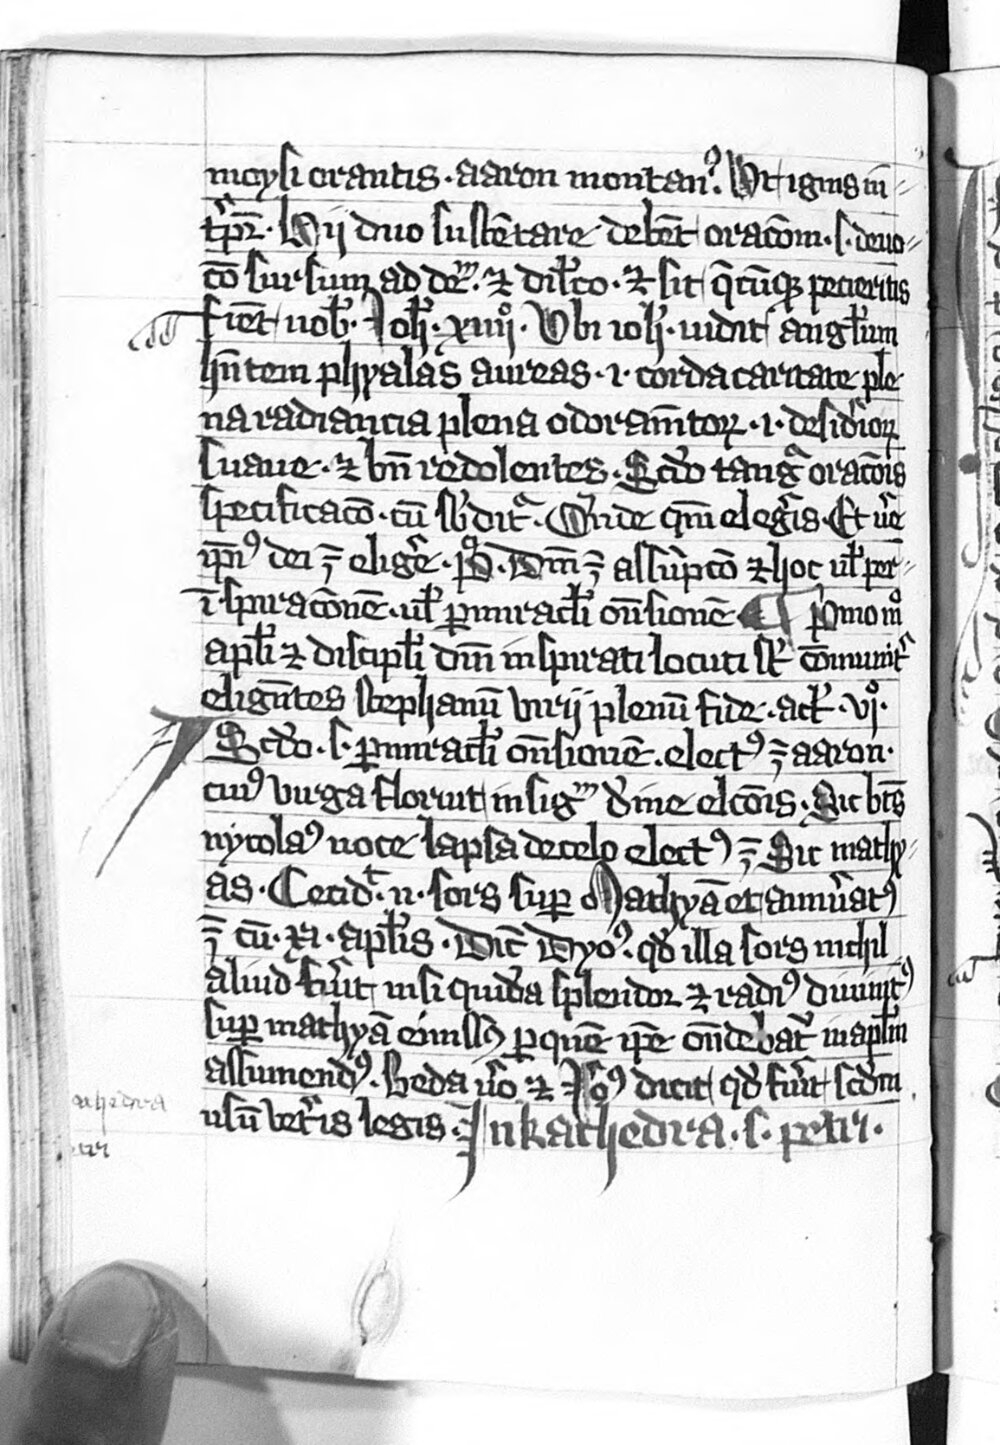 moysi orantis · aaron montan⁹. Ut ignis in-
t̄p̄r · Hii duo sustētare debēt orac̄om · s. deuo-
c̄o sursum ad deū. ⁊ dil̄co · ⁊ sit q̄cūq₃ pecieritis
fiēt uob̄ · Joh̄ · xiiij° · Ubi ioh̄ · uidit angl̄um
hn̄tem phyalas aureas · i · corda caritate ple
na radiancia plena odoram̄toꝝ · i · desid̄ioꝝ
suaue · ⁊ bn̄ redolentes · Scdo tanḡ orac̄ois
specificac̄o · cū sb̄dit̄ · Unde quē elegis · Et ūe
ip̄i⁹ dei ē eliḡe · P⁹ · Dn̄i ē assūpc̄o ⁊ hoc ul̄ per-
īspirac̄onē · ul̄ p̄ miracl̄i on̄sionē ¶ p̄mo m°
apl̄i ⁊ discipl̄i dn̄i inspirati locuti st̄ c̄omunit̄
elign̄tes stephanū virū plenū fide · act̄ · vj° ·
Scdo · s · p̄ miracl̄i on̄sionē · elect⁹ ē aaron ·
cui⁹ virga floruit in sigᵐ diuine elc̄ois · Sic bt̄s
nycola⁹ uoce lapsa de celo elect⁹ ē Sic mathy-
as · Cecidᵗ · n · sors sup̄ Mathyā et annūat⁹
ē cū · xi · apl̄is · Dic̄ Dyo⁹ · qd̄ illa sors nichil
aliud fūit nisi quida splendor ⁊ radi⁹ diuinit⁹
sup̄ mathyā emiss⁹ p̄ quē ip̄e on̄debat̄ in apl̄m
assumend⁹. Beda ūo ⁊ Jo⁹ dicit qd̄ fūit scd̄m
usū vet̄is legis · In kathedra · s · petri ·